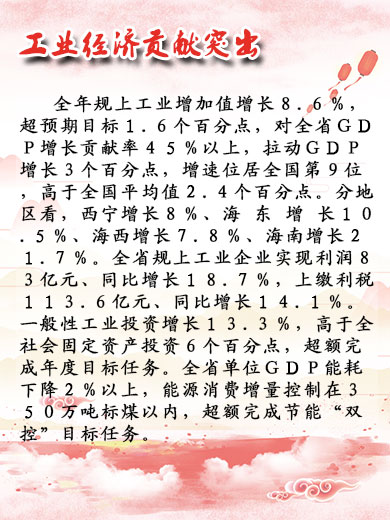 工业经济贡献突出
全年规上工业增加值增长８.６%，
超预期目标１.６个百分点，对全省ＧＤ
Ｐ增长贡献率４５%以上，拉动ＧＤＰ
增长３个百分点，增速位居全国第９位
，高于全国平均值２.４个百分点。分地
区看，西宁增长８%、海 东 增 长１０
.５%、海西增长７.８%、海南增长２
１.７%。全省规上工业企业实现利润８
３亿元、同比增长１８.７%，上缴利税
１１３.６亿元、同比增长１４.１%。
一般性工业投资增长１３.３%，高于全
社会固定资产投资６个百分点，超额完
成年度目标任务。全省单位ＧＤＰ能耗
下降２%以上，能源消费增量控制在３
５０万吨标煤以内，超额完成节能“双
控”目标任务。